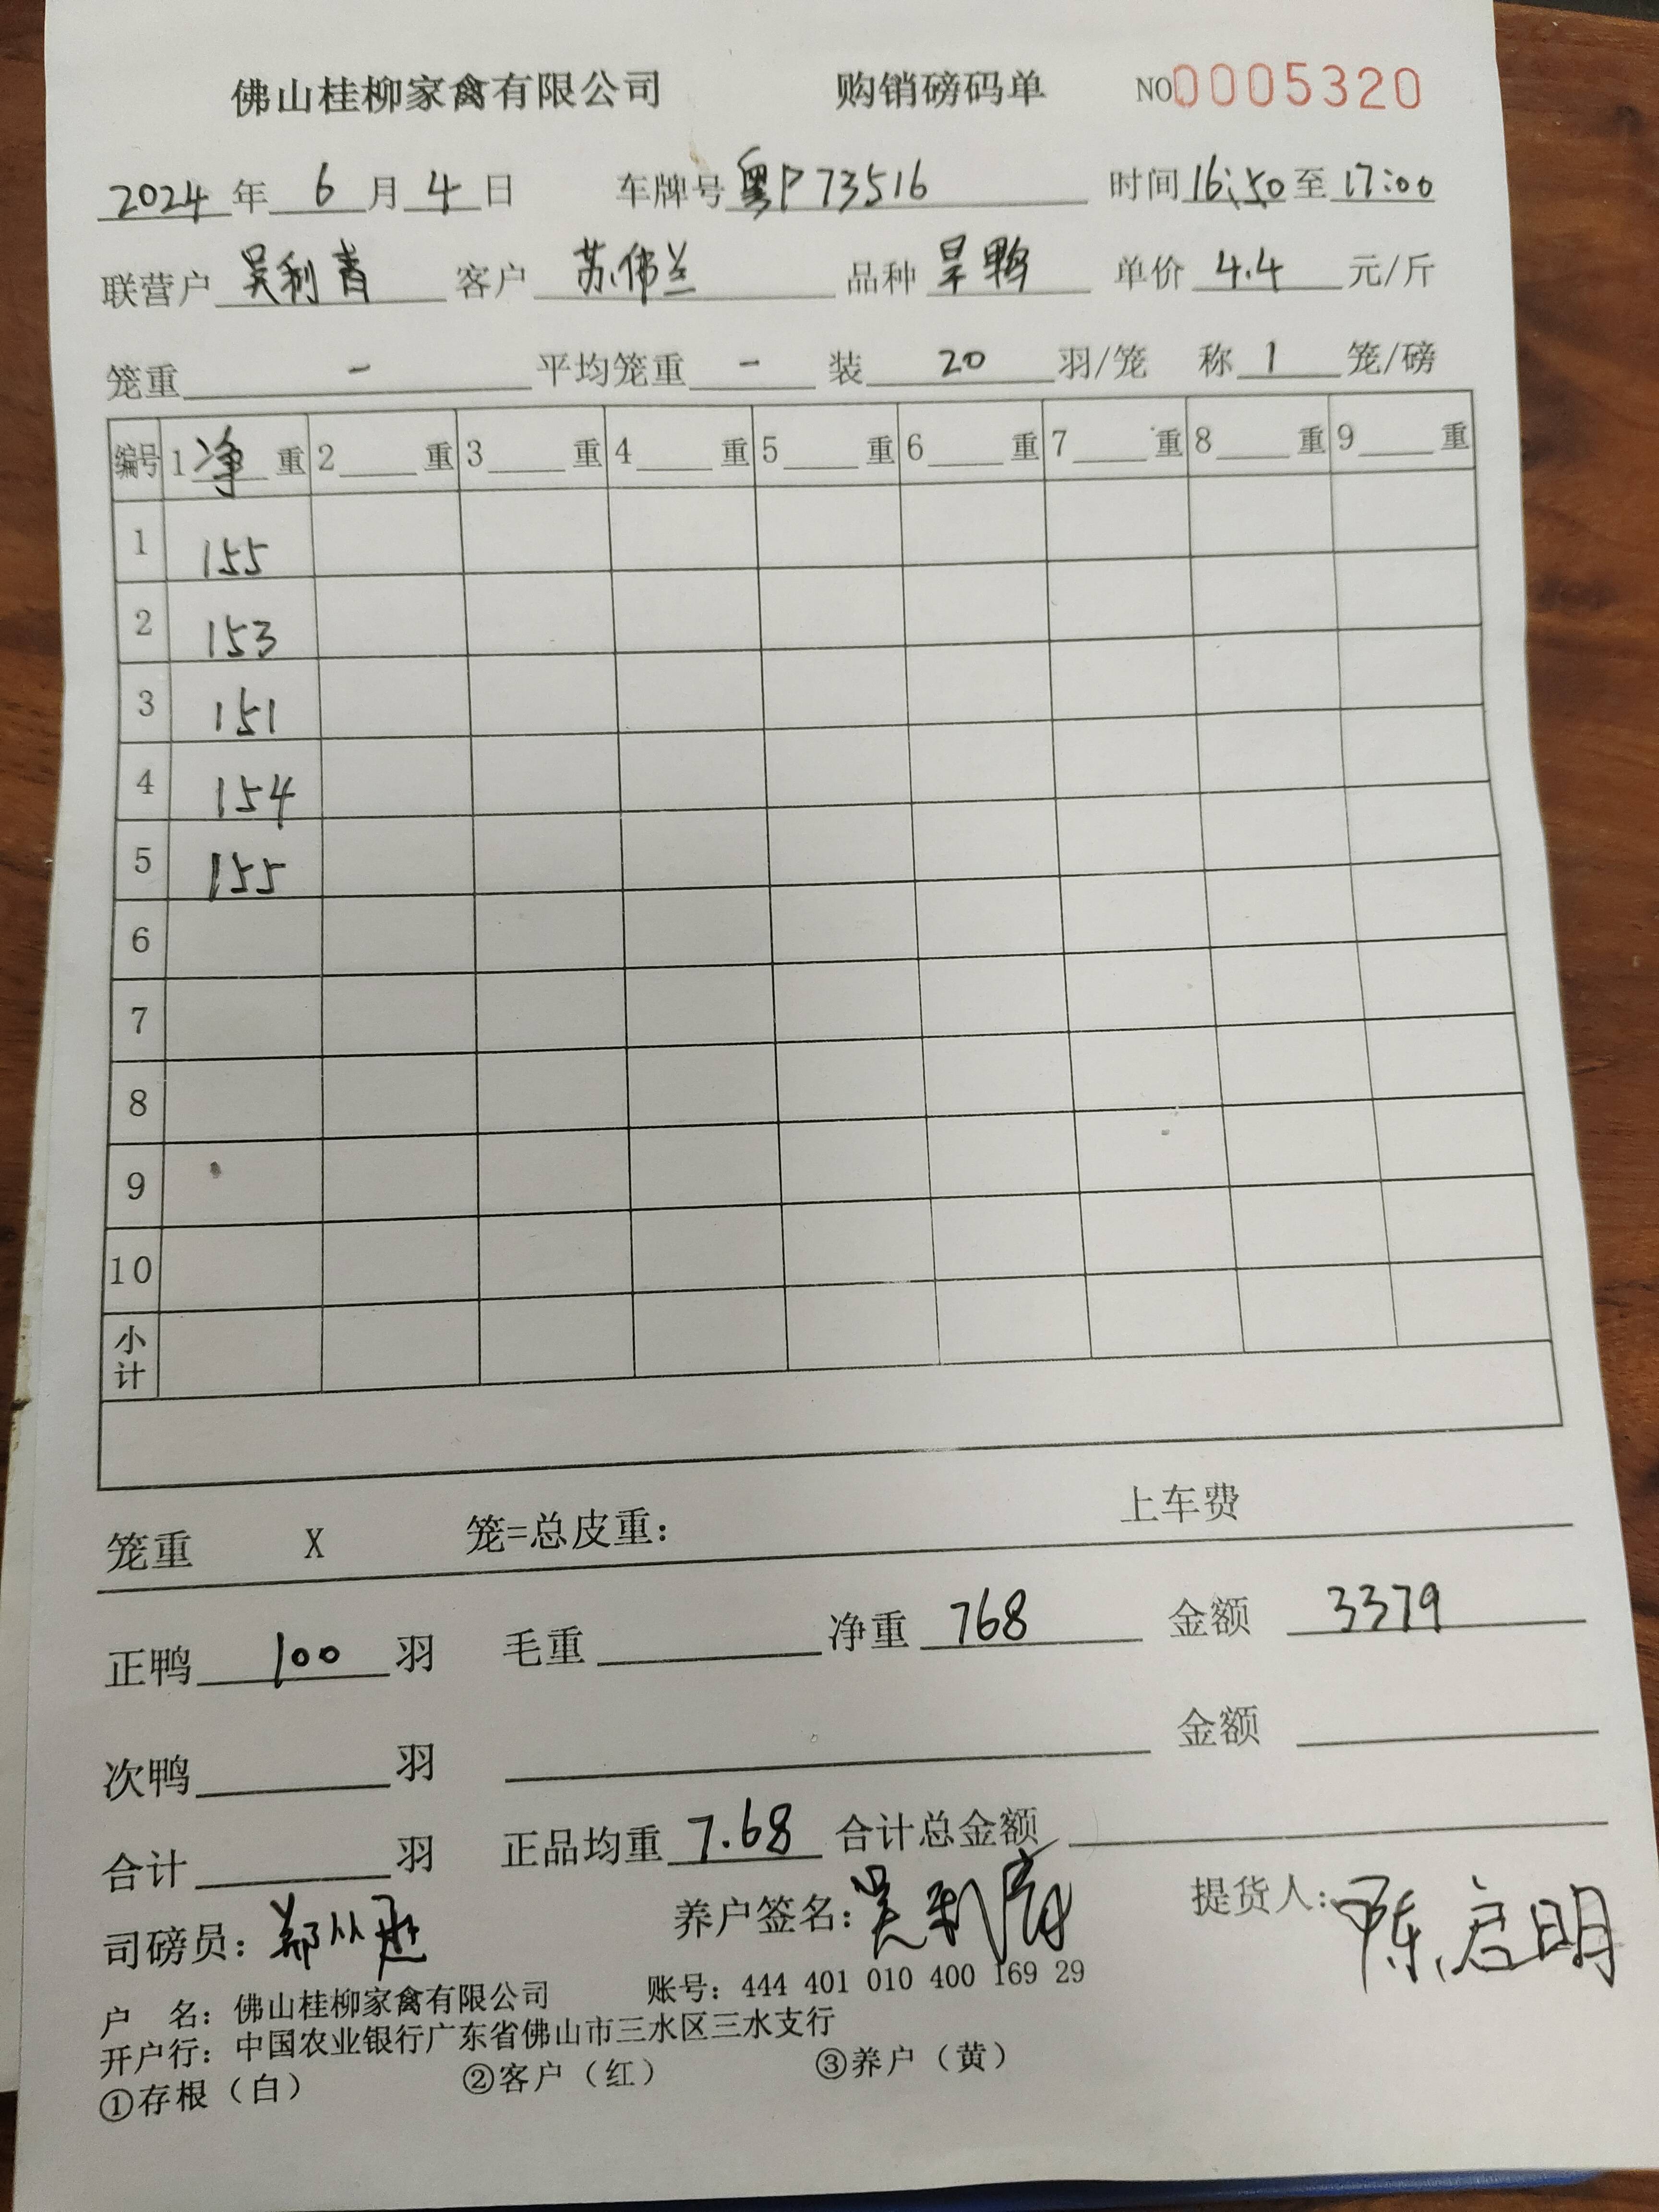 佛山桂柳家禽有限公司 购销磅码单 NO0005320
2024年6月4日 车牌号粤P73516 时间16:50至17:00
联营户 吴利青 客户 苏伟兰 品种 旱鸭 单价 4.4 元/斤
笼重 - 平均笼重 - 装 20 羽/笼 称 1 笼/磅
编号 1净重 2重 3重 4重 5重 6重 7重 8重 9重
1 155
2 153
3 151
4 154
5 155
6
7
8
9
10
小计
笼重 X 笼=总皮重: 上车费
正鸭 100 羽 毛重 净重 768 金额 3379
次鸭 羽 金额
合计 羽 正品均重 7.68 合计总金额
司磅员: 郑从 养户签名: 吴利 提货人: 陈启明
户 名: 佛山桂柳家禽有限公司 账号: 444 401 010 400 169 29
开户行: 中国农业银行广东省佛山市三水区三水支行
①存根(白) ②客户(红) ③养户(黄)